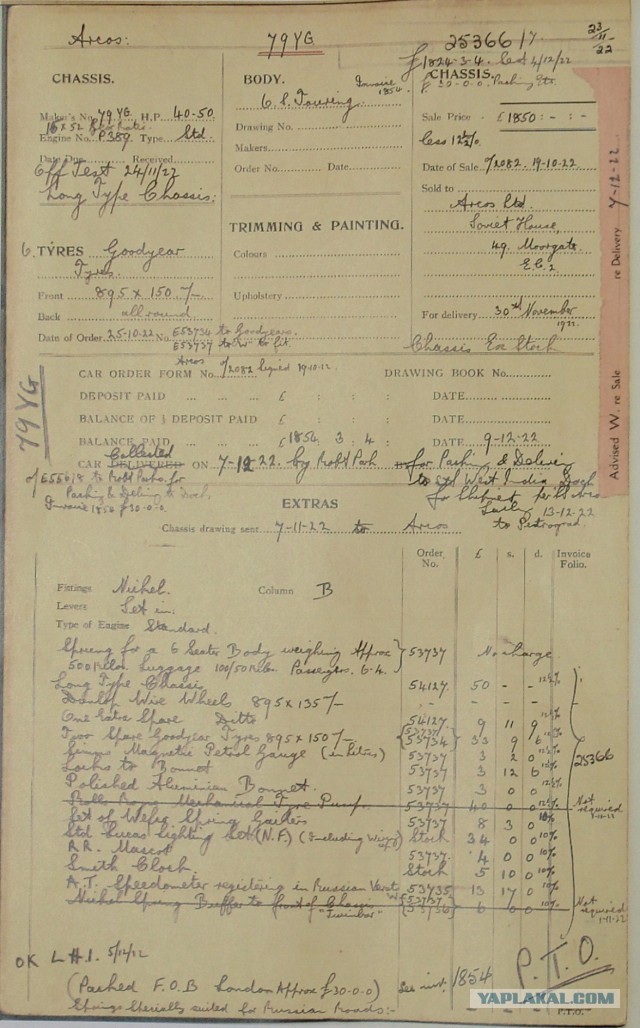 Arcos: 79YG 25366/7 23/11/22
£1824-3-4. less 4/12/22
£30-0-0. Packing Etc.
CHASSIS. BODY. Invoice 1854. CHASSIS.
6 S. Touring
Maker's No. 79YG. H.P. 40-50 Drawing No. Sale Price £1850: - : -
16 x 52
Engine No. P389. Type Std. Makers less 12½%
Date Due Received Order No. Date Date of Sale 2082. 19-10-22
Off Test 24/11/22 Sold to
Long Type Chassis: Arcos Ltd.
TRIMMING & PAINTING. Soviet House,
6. TYRES Goodyear Colours 49. Moorgate
Tyres. E.C.2
Front 895 x 150. Upholstery
Back all round For delivery 30th November 1922.
Date of Order 25-10-22 No. E53734 to Goodyears.
E53737 to to fit. Chassis Exe Stock
79YG
Arcos
CAR ORDER FORM No. 2082 Signed 19.10.22 DRAWING BOOK No.
DEPOSIT PAID £ : : DATE
BALANCE OF ⅓ DEPOSIT PAID £ : : DATE
BALANCE PAID £1854. 3 : 4 : DATE 9-12-22
Collected
CAR DELIVERED ON 7-12 22. by Robt Park for Packing & Delivery
E55618 to Robt Parks for to Std West India Dock
Packing & Deling to Dock. for Shipment per
Invoice 1856 £30-0-0. 13-12-22
EXTRAS to Petrograd.
Chassis drawing sent 7-11-22 to Arcos
Advised W. re Sale re Delivery 7-12-22
Order No. £ s. d. Invoice Folio.
Fittings Nickel. Column B
Levers Set in.
Type of Engine Standard.
Sprung for a 6 Seater Body weighing Approx } 53737 No charge
500 Kilos. Luggage 100/50 Kilos Passengers. 6-4.
Long Type Chassis 54127. 50 - - 12½%
Dunlop Wire Wheels 895 x 135 - - -
One Extra Spare Ditto 54127 9 11 9 12½%
Two Spare Goodyear Tyres 895 x 150 { 53737 53734 33 9 6
Magnetic Petrol Gauge (in litres) 53737 3 2 0 25366
Locks to Bonnet 53737 3 12 6 10%
Polished Aluminium Bonnet. 53737 3 0 0
Rolls Royce Mechanical Tyre Pump. 53737 40 0 0 12½% Not required
Set of Wefco Spring Gaiters 53737 8 3 0 10%
Std Lucas Lighting Set (N.F.) (Including Wiring) Stock 34 0 0 10%
R.R. Mascot 53737. 4 0 0 10%
Smith Clock. Stock 5 10 0 10%
A.T. Speedometer registering in Russian Verst 53735 13 17 0 10%
Nickel Sprung Buffer to front of Chassis "Twinbar" 53737 53736 6 6 0 10% Not required 1-11-22
OK L.H.I. 5/12/22
(Packed F.O.B London Approx £30-0-0) See inv. 1854 P.T.O.
Springs Specially suited for Russian Roads:-
P.T.O.
YAPLAKAL.COM